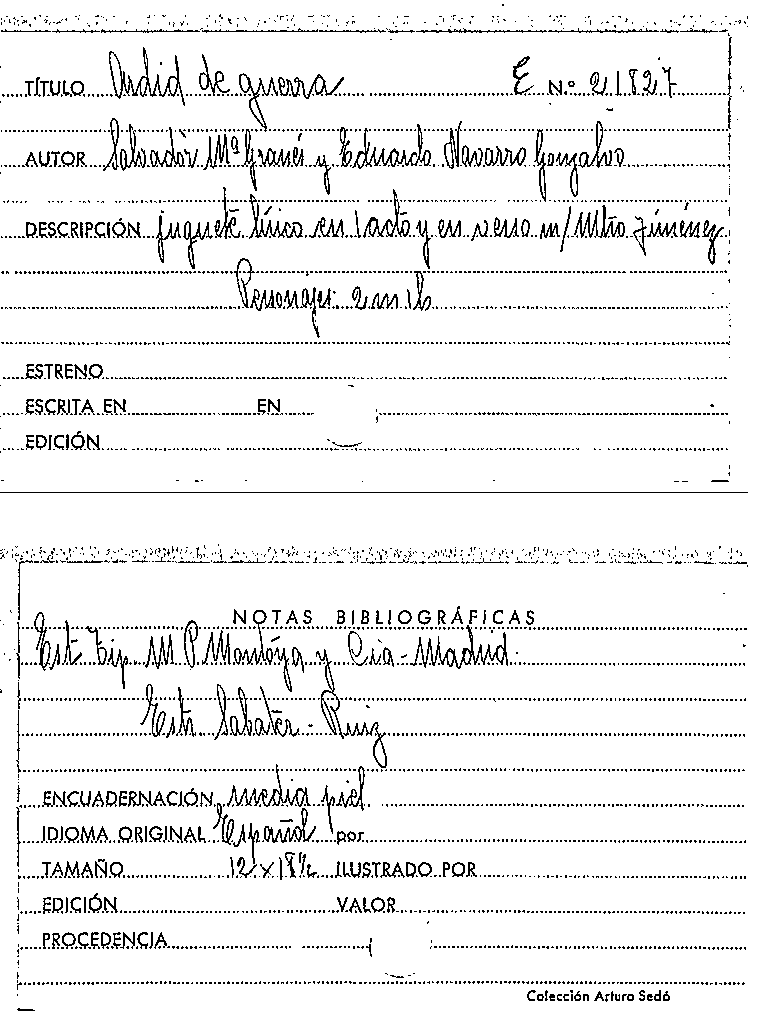 TÍTULO Ardid de guerra E N.º 21827
AUTOR Salvador Mª Granés y Eduardo Navarro Gonzalvo
DESCRIPCIÓN juguete lírico en 1 acto y en verso m/ Mtro Jiménez
Personajes: 2 m 1 h
ESTRENO
ESCRITA EN EN
EDICIÓN
NOTAS BIBLIOGRÁFICAS
Est. Tip. M P Montoya y Cia - Madrid.
Estr. Sabater - Ruiz
ENCUADERNACIÓN media piel.
IDIOMA ORIGINAL Español por
TAMAÑO 12 x 18½ ILUSTRADO POR
EDICIÓN VALOR
PROCEDENCIA
Colección Arturo Sedó